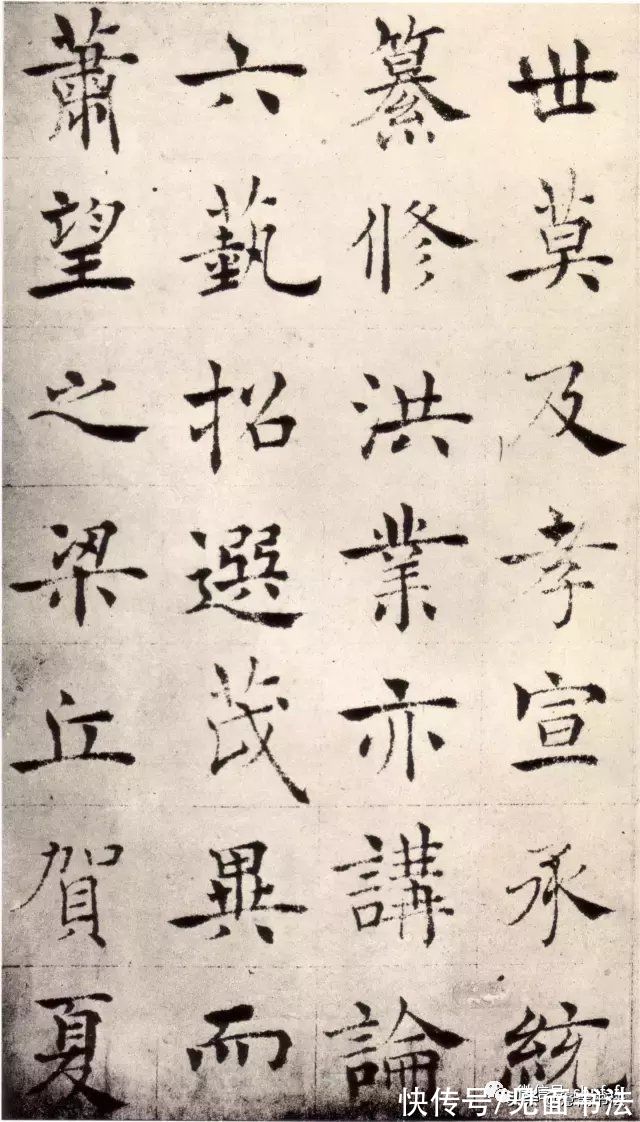 世莫及孝宣承統
纂修洪業亦講論
六藝招選茂異而
蕭望之梁丘賀夏
快传号/晃面书法